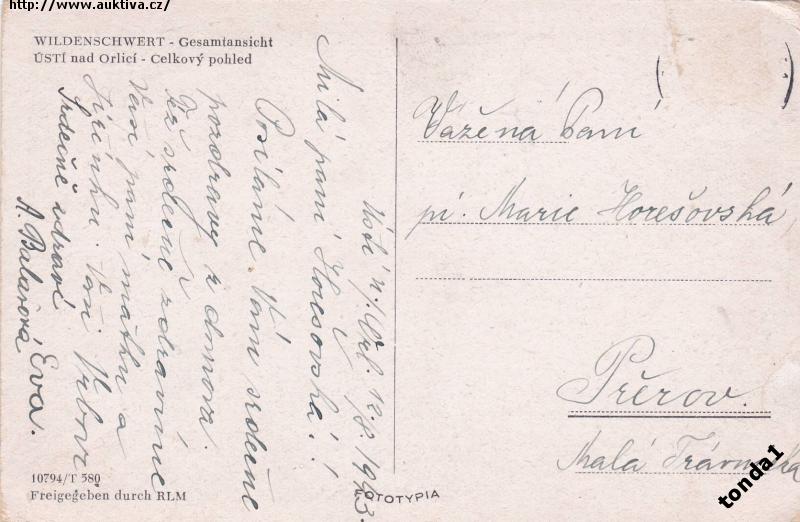 http://www.auktiva.cz/
WILDENSCHWERT - Gesamtansicht
ÚSTÍ nad Orlicí - Celkový pohled
Ústí n/Orl. 12.8.1943.
Milá paní Horešovská!
Posíláme Vám srdečné
pozdravy z domova.
Též srdečně zdravíme
Vaši paní matku a
Jiřinku. Vaši
Srdečně zdraví
A. Balarová Eva.
Vážená Paní
pí. Marie Horešovská
Přerov.
Malá
10794/T 580
Freigegeben durch RLM
FOTOTYPIA
tonda1